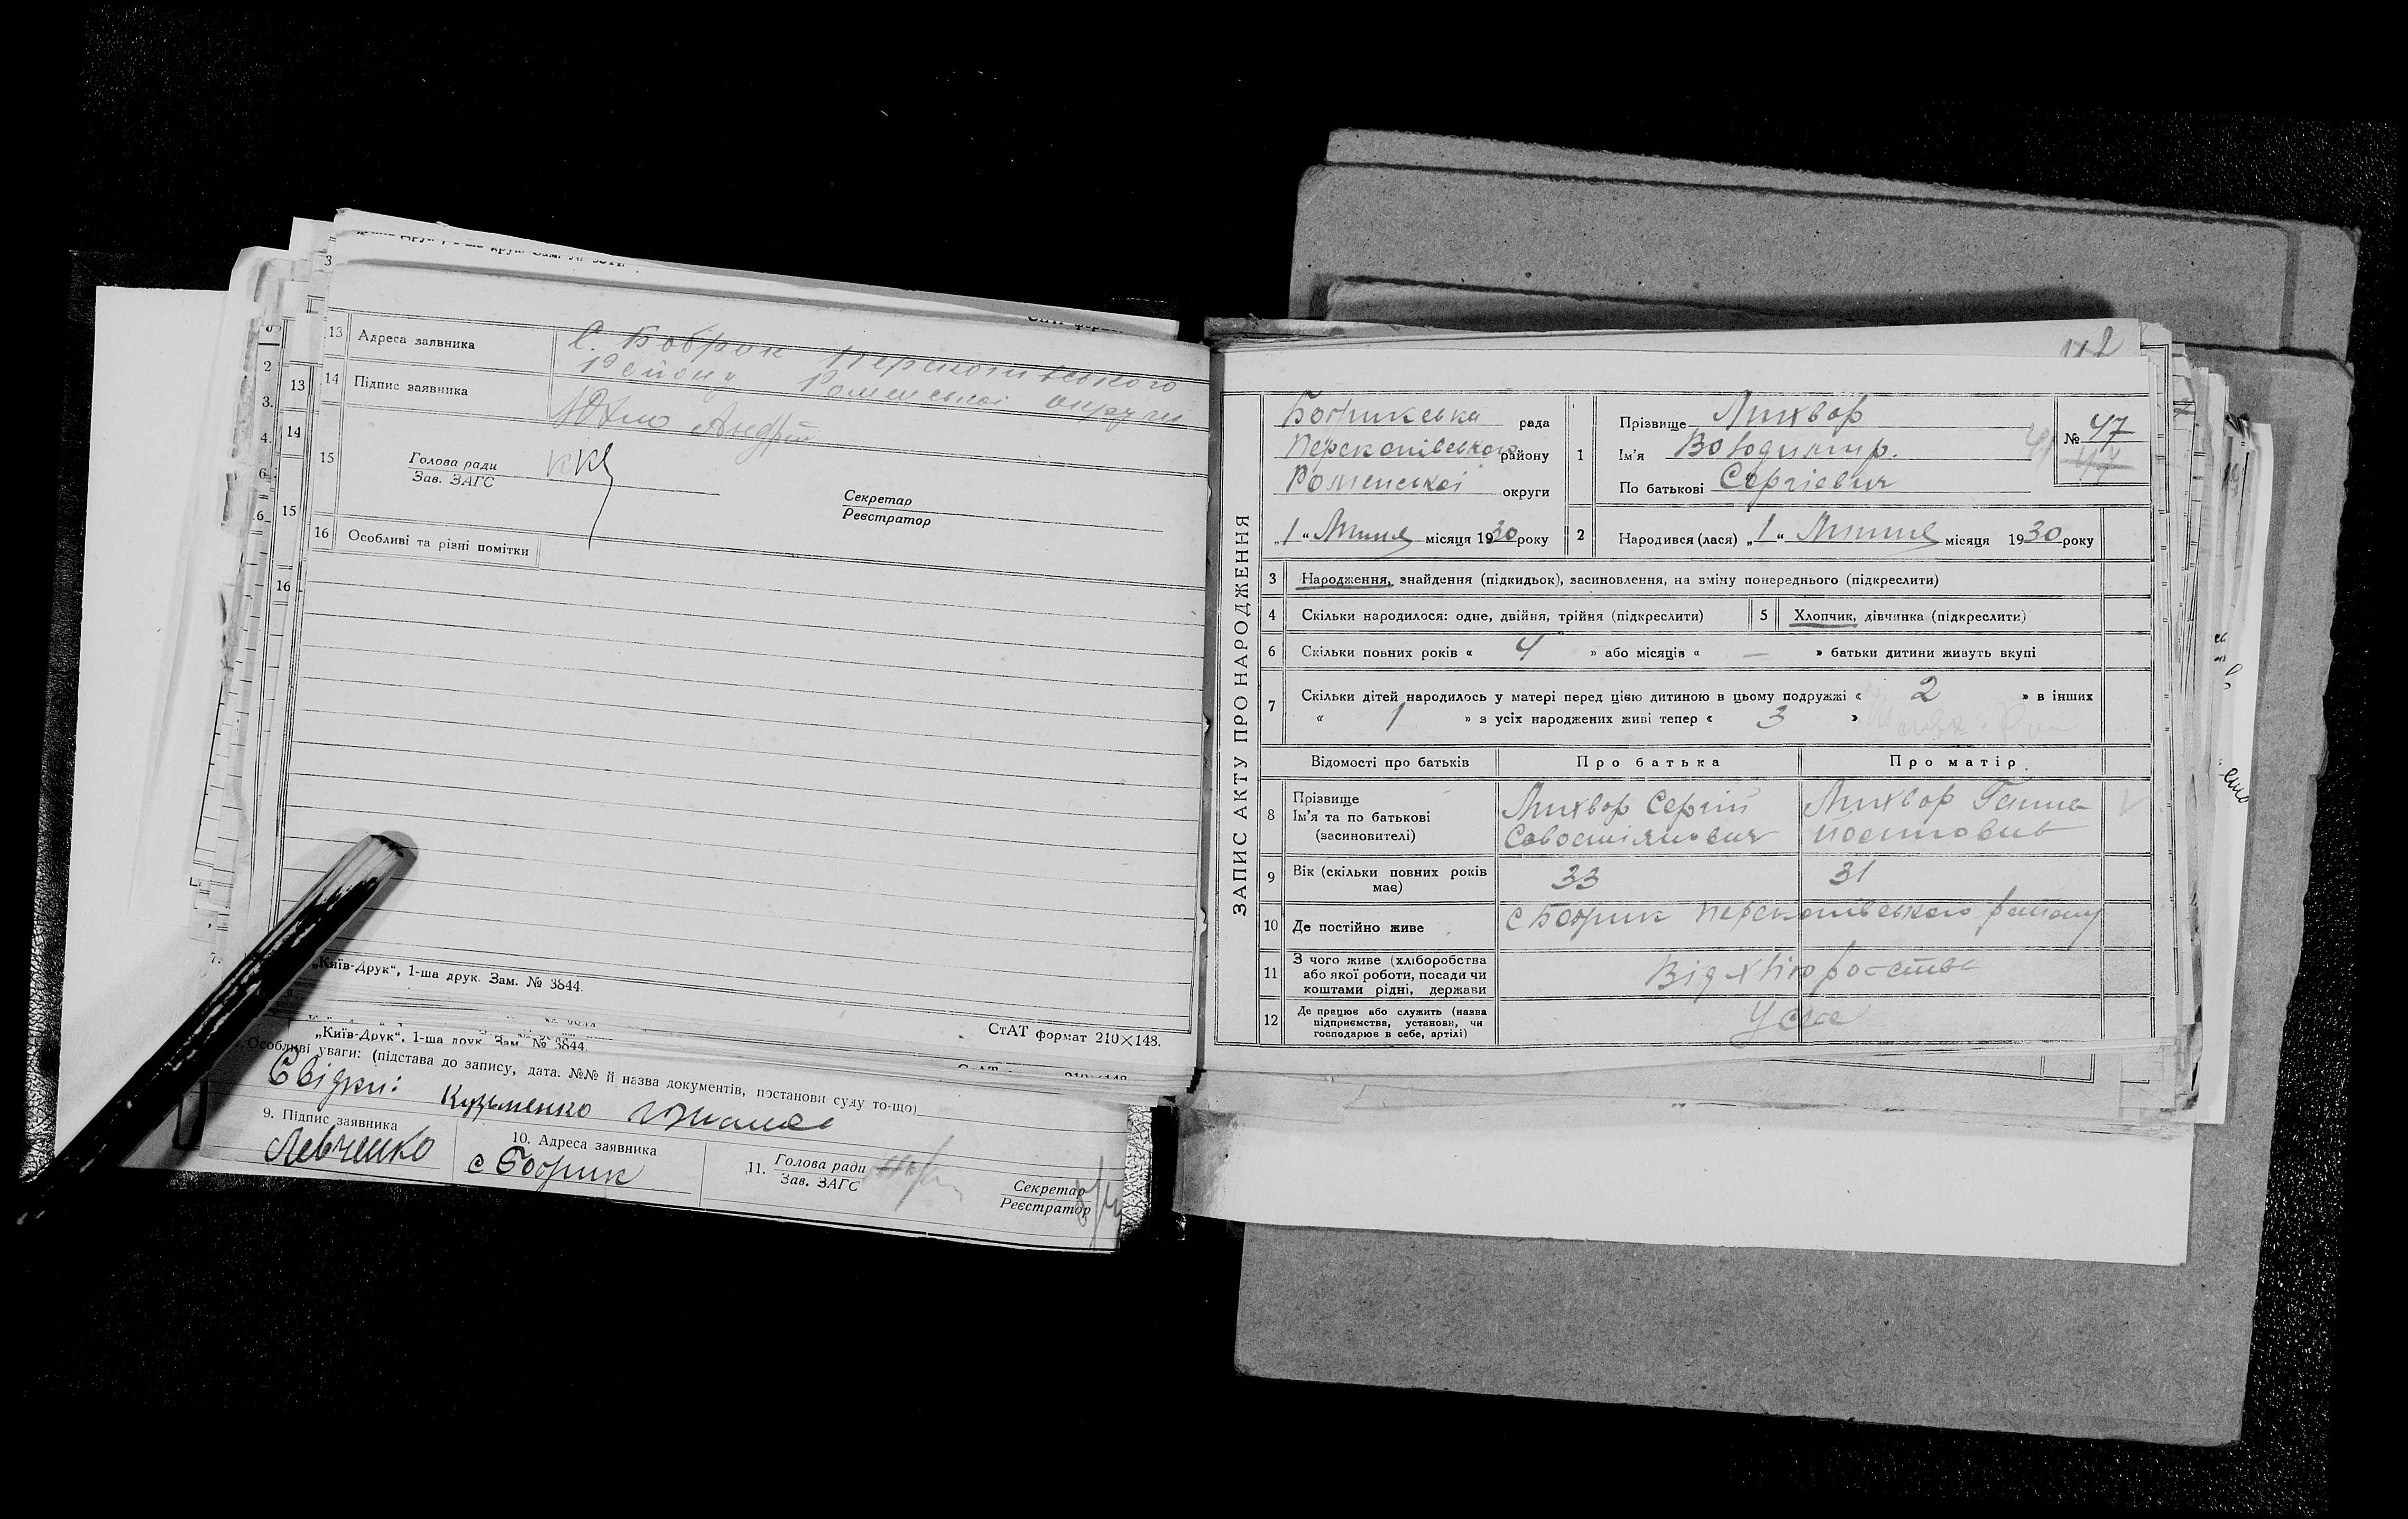 13 Адреса заявника С. Бобрик Перекопівського
Району Роменської округи
14 Підпис заявника Андрій
15 Голова ради
Зав. ЗАГС
Секретар
Реєстратор
16 Особливі та різні помітки
„Київ-Друк“, 1-ша друк. Зам. № 3844.
СтАТ формат 210×148.
„Київ-Друк“, 1-ша друк. Зам. № 3844.
Особливі уваги: (підстава до запису, дата. №№ й назва документів, постанови суду то-що)
Свідки: Кузьменко
9. Підпис заявника
Левченко
10. Адреса заявника
с Бобрик
11. Голова ради
Зав. ЗАГС
Секретар
Реєстратор
ЗАПИС АКТУ ПРО НАРОДЖЕННЯ
Бобрикська рада
Перекопівського району
Роменської округи
„1“ Липня місяця 1930 року
1 Прізвище Лихвор
Ім'я Володимир.
По батькові Сергієвич
№ 47
2 Народився (лася) „1“ Липня місяця 1930 року
3 Народження, знайдення (підкидьок), засиновлення, на зміну попереднього (підкреслити)
4 Скільки народилося: одне, двійня, трійня (підкреслити) 5 Хлопчик, дівчинка (підкреслити)
6 Скільки повних років « 4 » або місяців « — » батьки дитини живуть вкупі
7 Скільки дітей народилось у матері перед цією дитиною в цьому подружжі « 2 » в інших
« 1 » з усіх народжених живі тепер « 3 »
Відомості про батьків Про батька Про матір
8 Прізвище
Ім'я та по батькові
(засиновителі)
Лихвор Сергій
Савостіянович
Лихвор Ганна
9 Вік (скільки повних років
має)
33 31
10 Де постійно живе с Бобрик Перекопівського району
11 З чого живе (хліборобства
або якої роботи, посади чи
коштами рідні, держави
Від хліборобства
12 Де працює або служить (назва
підприємства, установи, чи
господарює в себе, артілі)